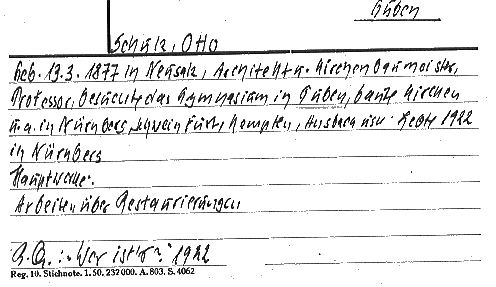 Guben
Schulz, Otto
Geb. 19.3.1877 in Neusalz, Architekt u. Kirchenbaumeister,
Professor, besuchte das Gymnasium in Guben, baute Kirchen
u.a. in Nürnberg, Schweinfurt, Kempten, Ansbach usw. Lebte 1922
in Nürnberg
Hauptwerke:
Arbeiten über Restaurierungen
"Wer ist's?" 1922
Reg. 10. Stichnote. 1. 50. 232000. A. 803. S. 4062